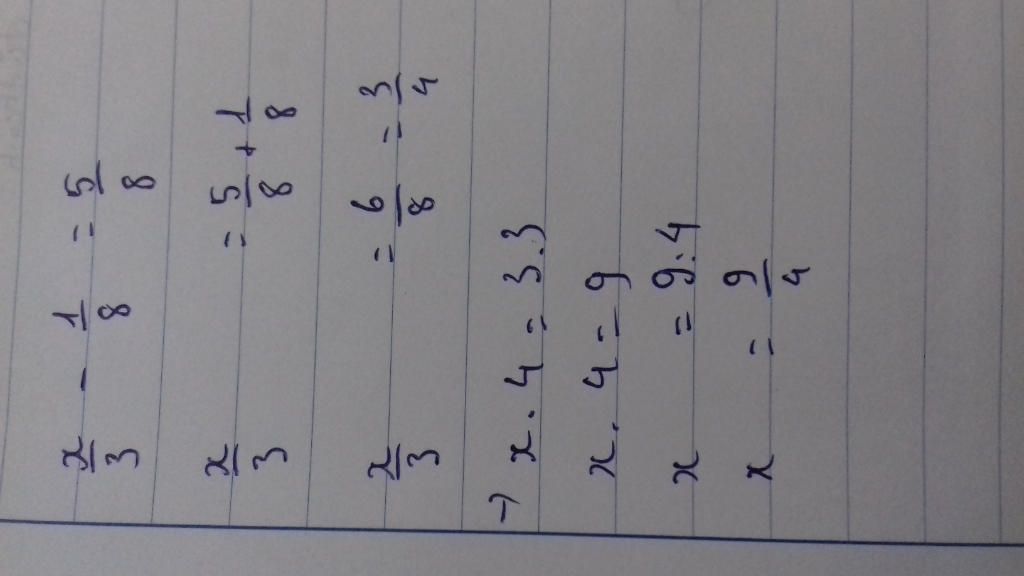 x/3 - 1/8 = 5/8
x/3 = 5/8 + 1/8
x/3 = 6/8 = 3/4
→ x . 4 = 3.3
x . 4 = 9
x = 9:4
x = 9/4